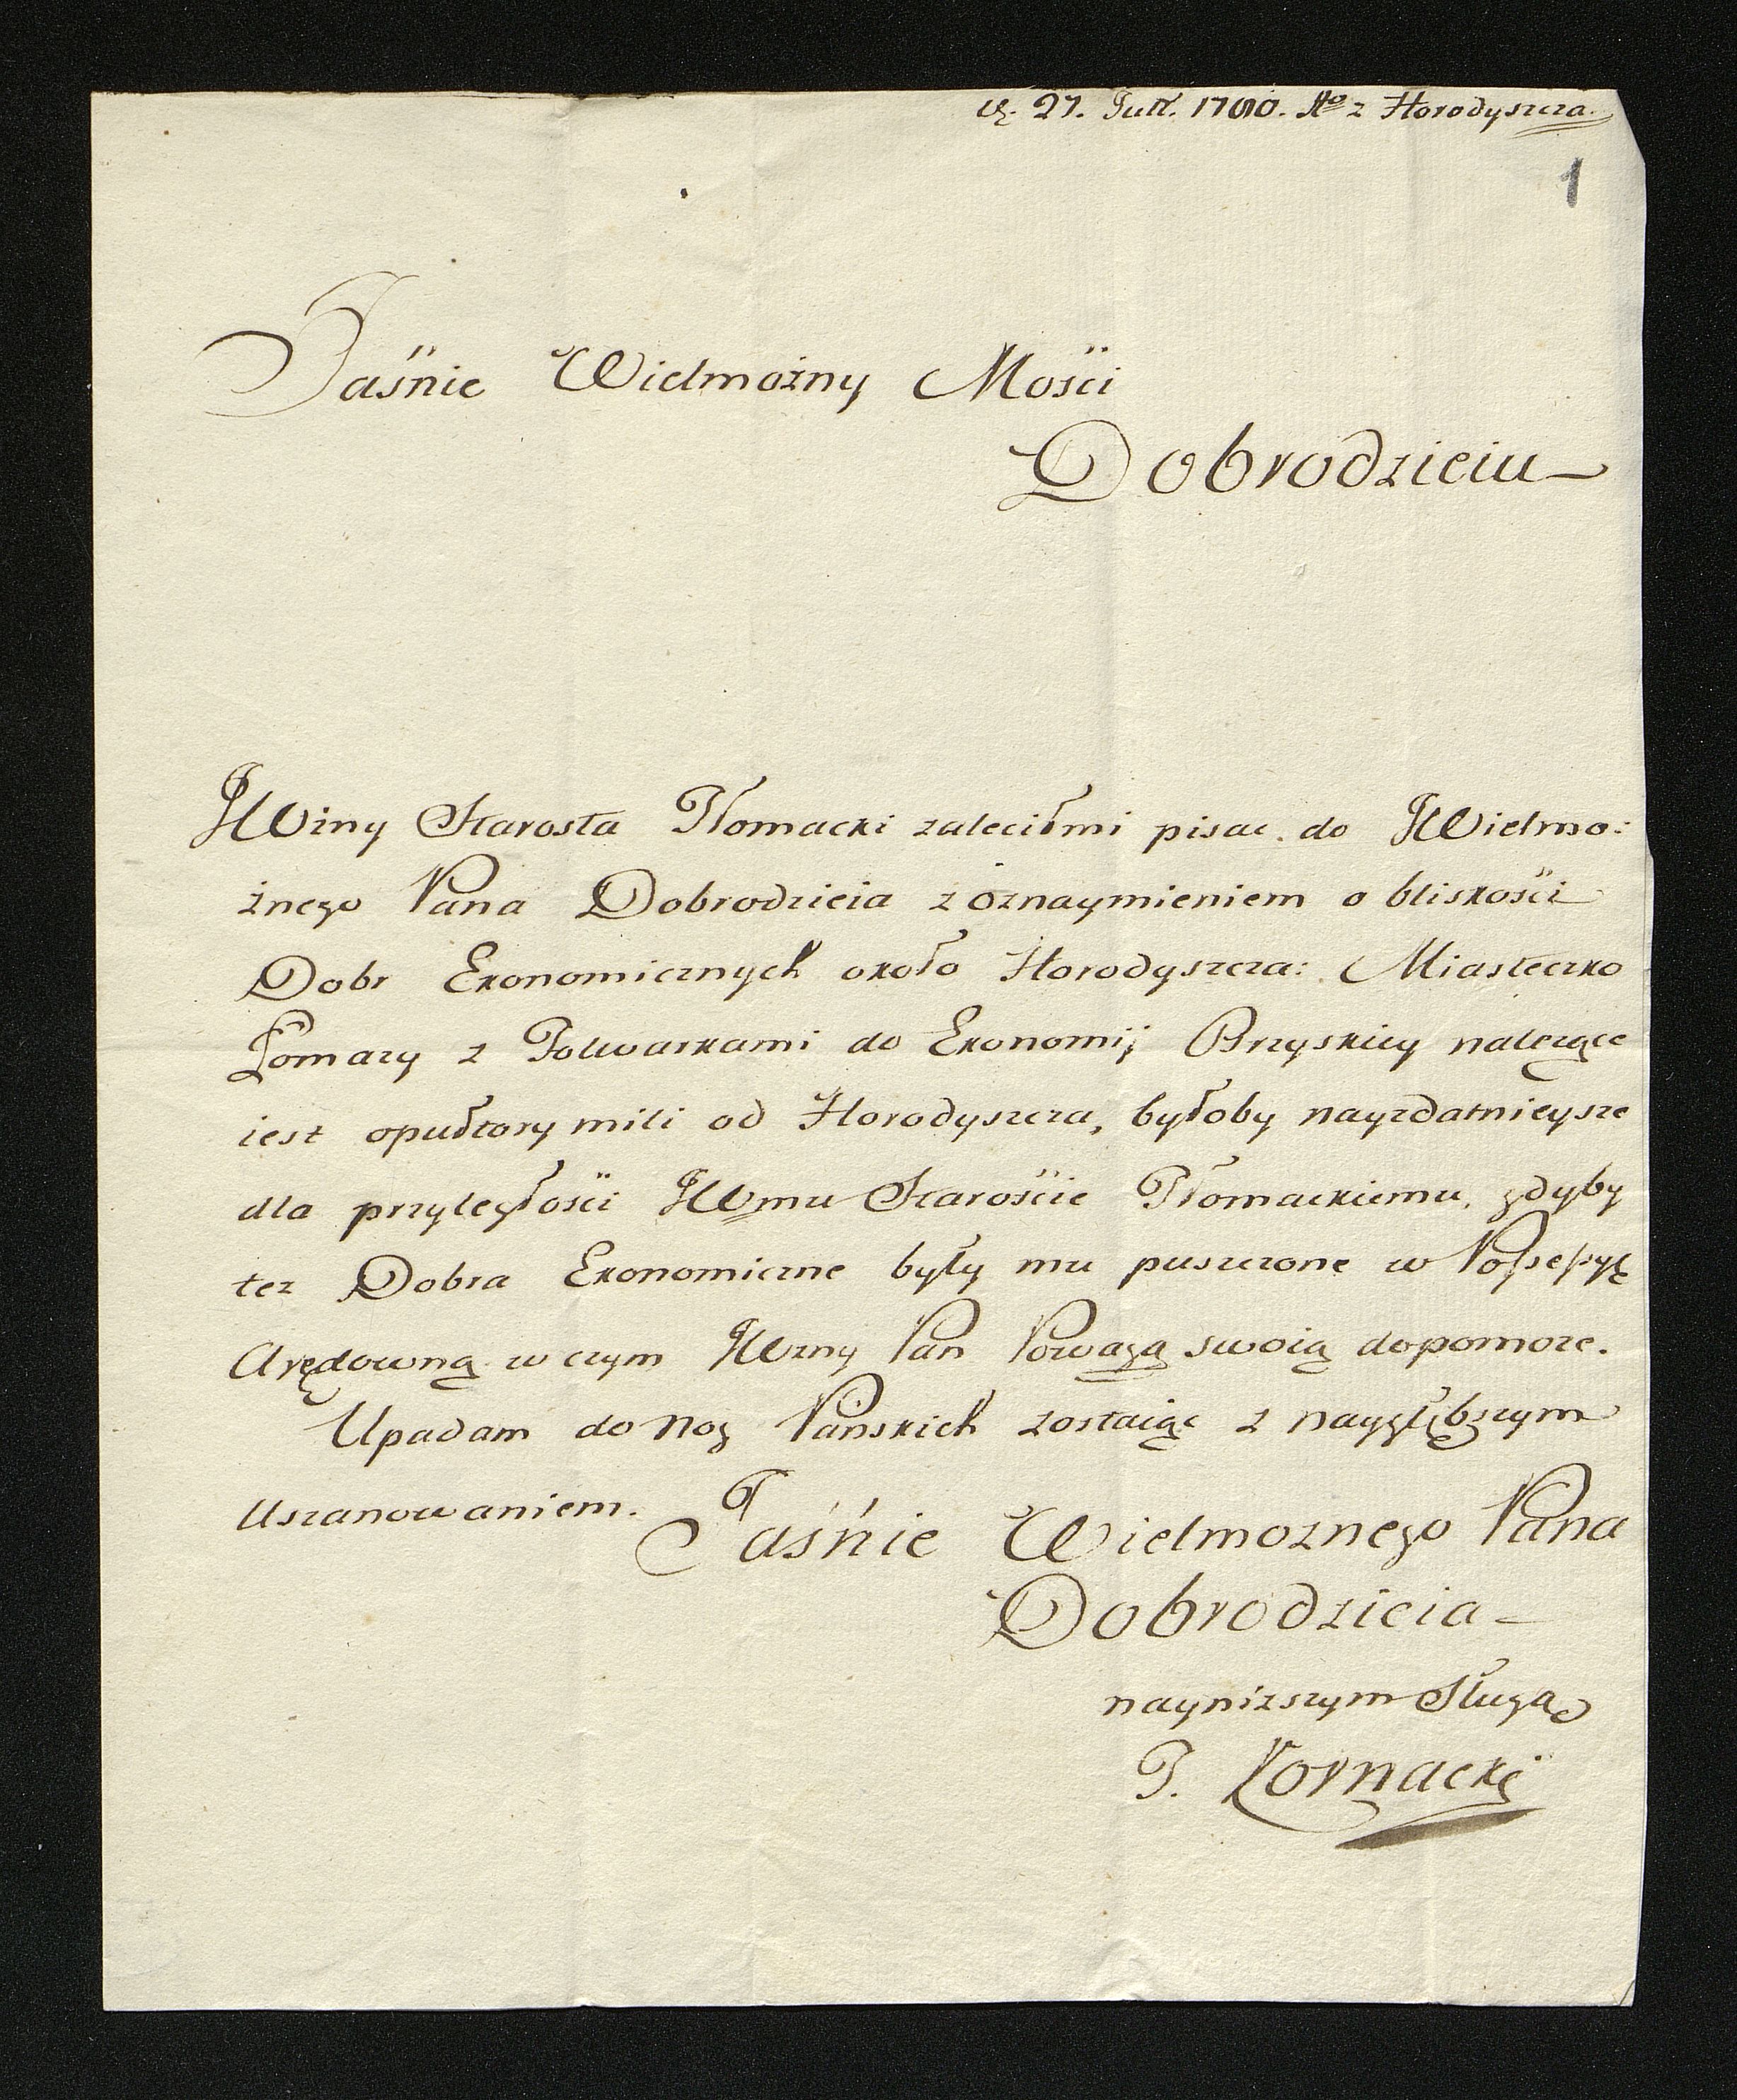 27. Jull. 1780. Ao z Horodyszcza.
1
Jaśnie Wielmożny Mości
Dobrodzieiu
JWżny Starosta Tłomacki zaleciłmi pisac do JWielmo:
żnego Pana Dobrodzieia z oznaymieniem o bliskości
Dobr Ekonomicznych około Horodyszcza: Miasteczko
Łomazy z Folwarkami do Ekonomij Brzyskiey należące
iest opułtory mili od Horodyszcza, byłoby nayzdatnieysze
dla przyległości JWmu Starościе Tłomackiemu, gdyby
tez Dobra Ekonomiczne były mu puszczone w Possessyę
Arędowną w czym JWżny Pan Powagą swoią dopomoze.
Upadam do nog Pańskich zostaiąc z naygłębszym
Uszanowaniem. Jaśnie Wielmoznego Pana
Dobrodzieia
naynizszym Sługą
J. Kornacki